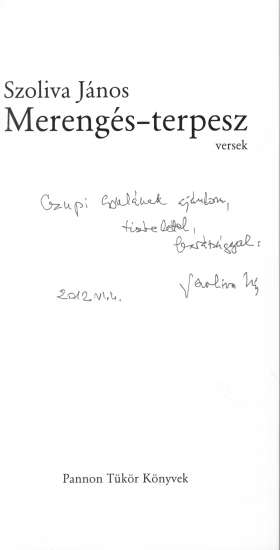 Szoliva János
Merengés-terpesz
versek
Czupi Gyulának ajánlom,
tisztelettel,
barátsággal:
2012. VI. 4.
Szoliva
Pannon Tükör Könyvek